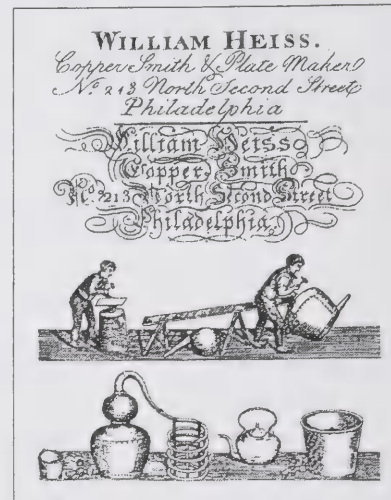 WILLIAM HEISS.
Copper Smith & Plate Maker
No. 213 North Second Street
Philadelphia
William Heiss
Copper Smith
No. 213 North Second Street
Philadelphia